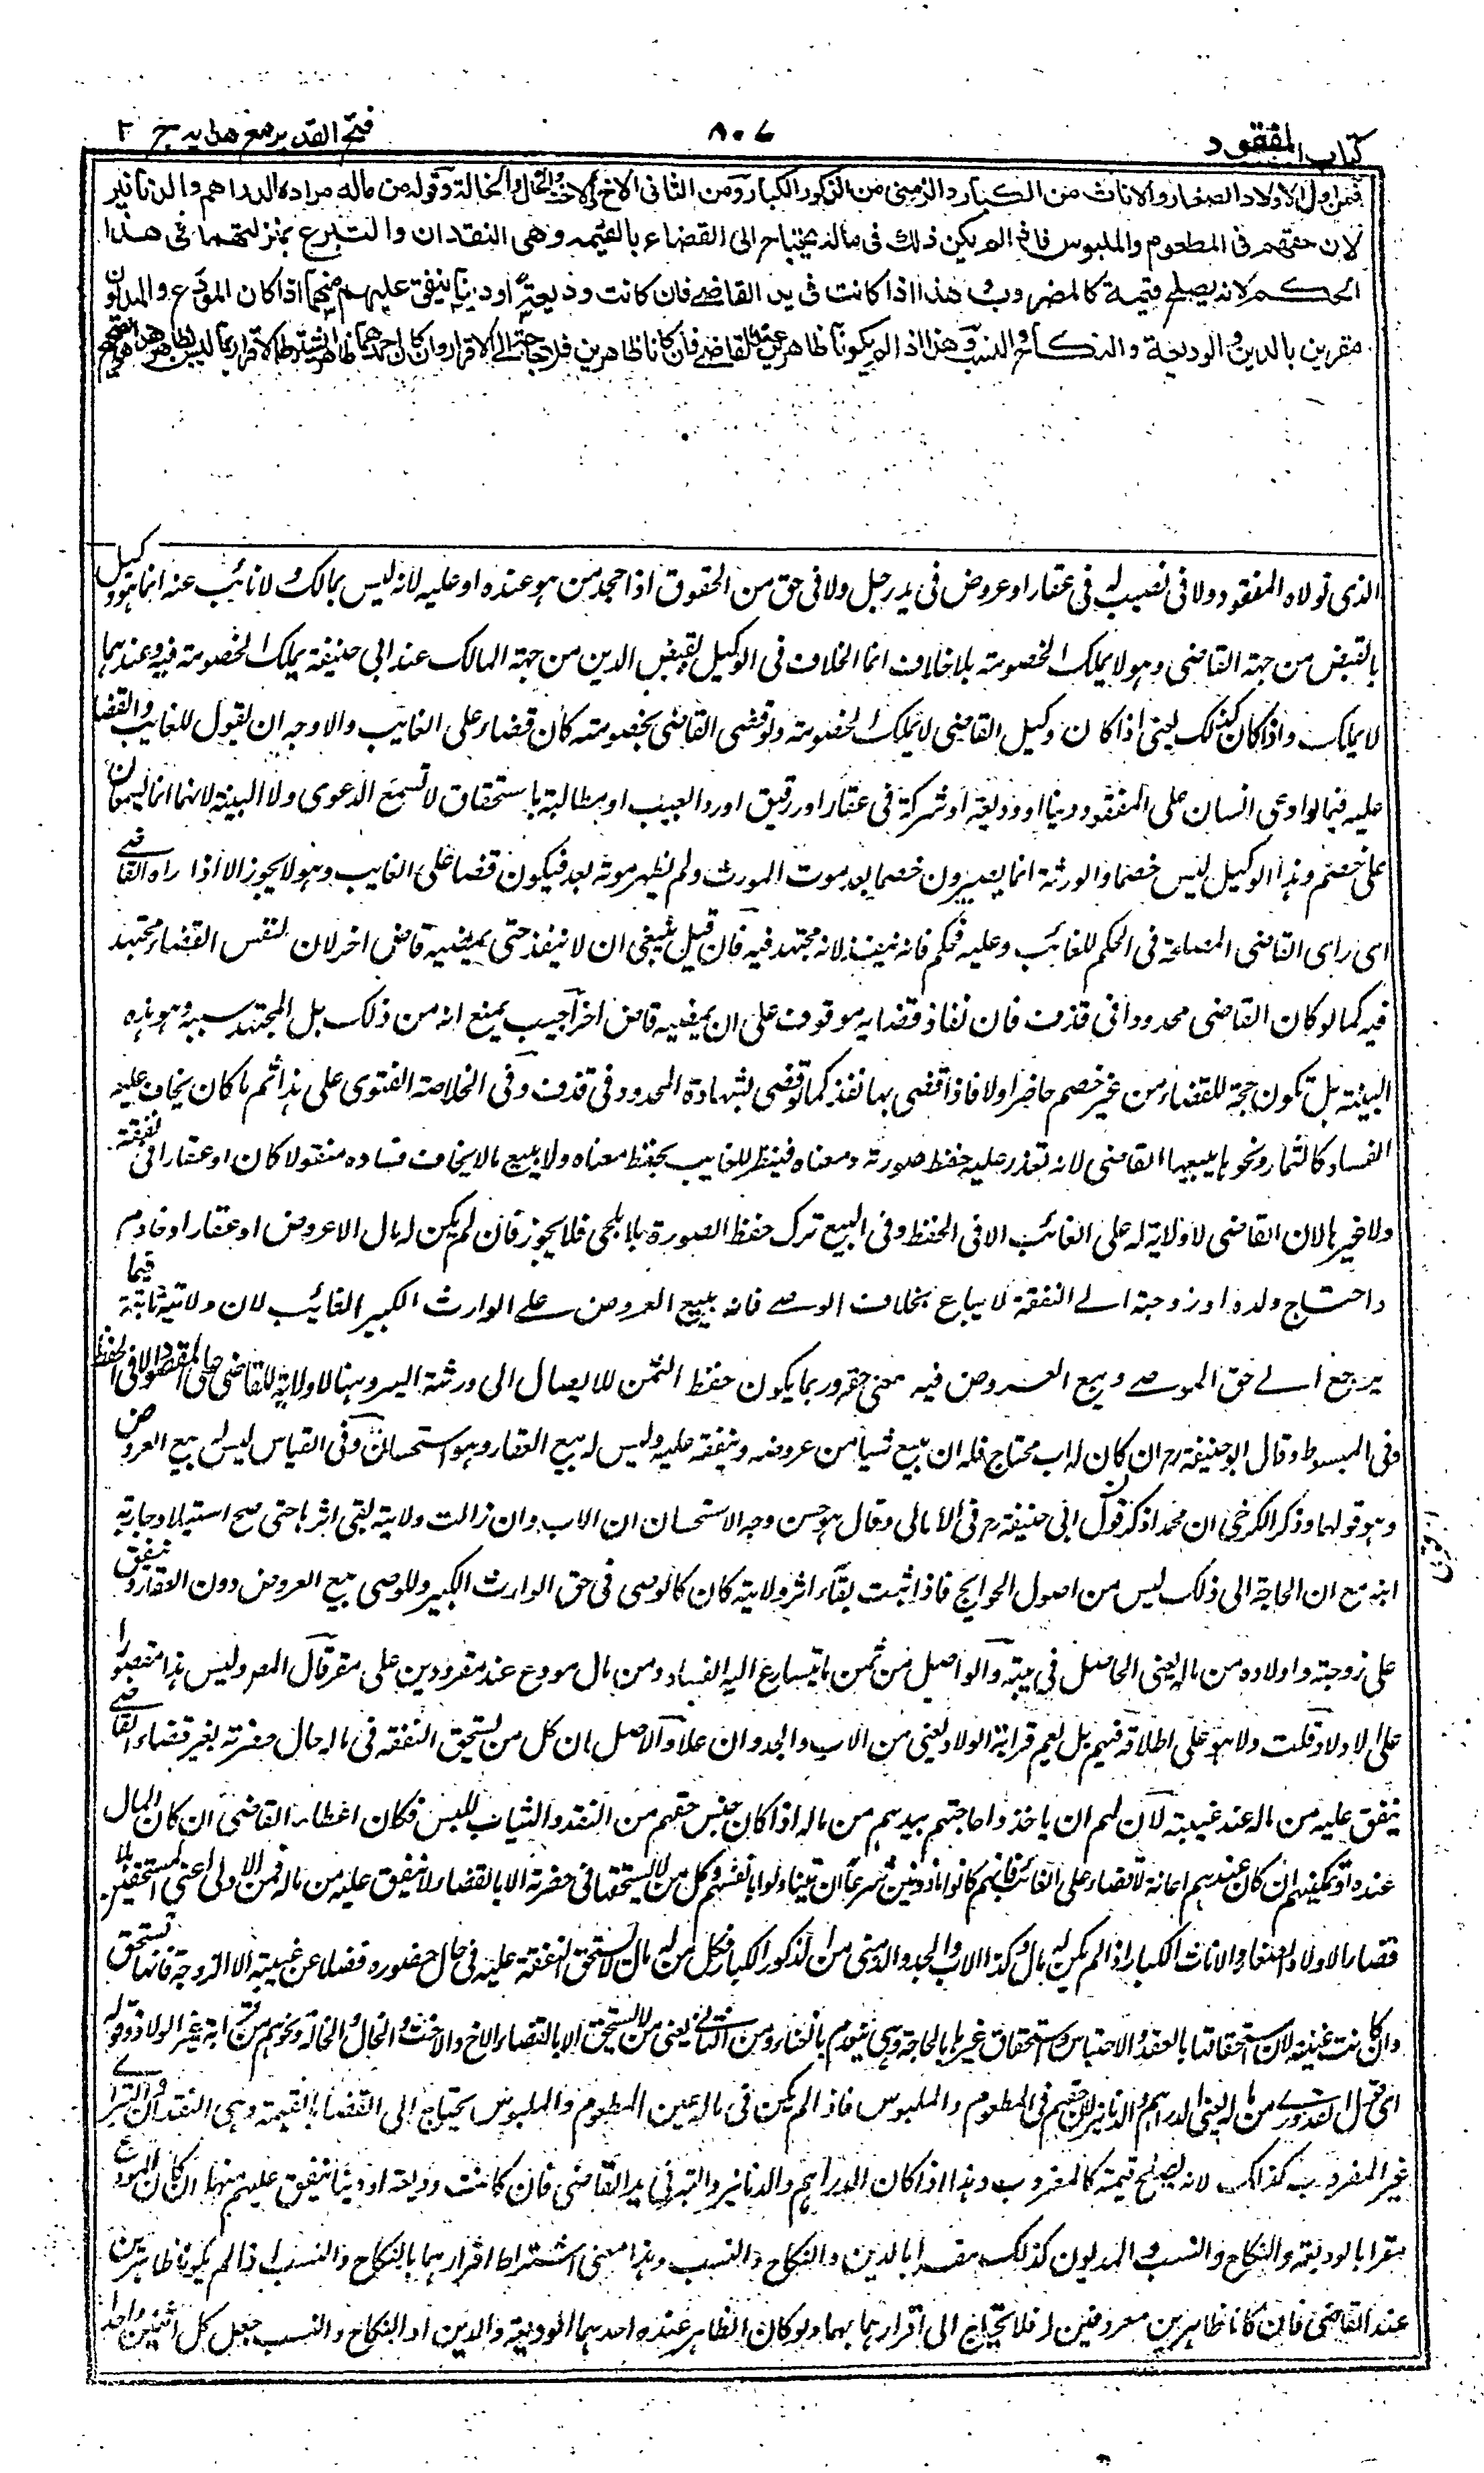 كتاب المفقود
٨٠٧
فتح القدير مع هدايه ج ٢
فمن الاول الاولاد الصغار والاناث من الكبار والزمنى من الذكور الكبار ومن الثانى الاخ والاخت والخال والخالة وقوله من ماله مراده الدراهم والدنانير
لان حقهم فى المطعوم والملبوس فاذا لم يكن ذلك فى ماله يحتاج الى القضاء بالقيمه وهى النقدان والتبر بمنزلتهما فى هذا
الحكم لانه يصلح قيمة كالمضروب وهذا اذا كانت فى يد القاضى فان كانت وديعة او دينا ينفق عليهم منهما اذا كان المودع والمديون
مقرين بالدين والوديعة والنكاح والنسب وهذا اذا لم يكونا ظاهرين عند القاضى فان كانا ظاهرين فلا حاجة الى الاقرار وان كان احدهما ظاهرا يشترط الاقرار بما ليس بظاهر هذا هو الصحيح
الذى تولاه المفقود ولا فى نصيب له فى عقار او عروض فى يد رجل ولا فى حق من الحقوق اذا جحد من هو عنده او عليه لانه ليس بمالك ولا نائب عنه انما هو وكيل
بالقبض من جهة القاضى وهو لا يملك الخصومة بلا خلاف انما الخلاف فى الوكيل بقبض الدين من جهة المالك عند ابى حنيفة يملك الخصومة فيه وعندهما
لا يملك واذا كان كذلك يعنى اذا كان وكيل القاضى لا يملك الخصومة ولو قضى القاضى بخصومته كان قضاء على الغايب والاوجه ان يقول للغايب والقضا
عليه فيما لو ادعى انسان على المفقود دينا او وديعة او شركة فى عقار او رقيق او رد العيب او مطالبة باستحقاق لا تسمع الدعوى ولا البينة لانهما انما يسمعان
على خصم وهذا الوكيل ليس خصما والورثة انما يصيرون خصما بعد موت المورث ولم يظهر موته بعد فيكون قضا على الغايب وهو لا يجوز الا اذا راه القاضى
اى راى القاضى المصلحة فى الحكم للغائب وعليه فحكم فانه ينفذ لانه مجتهد فيه فان قيل ينبغى ان لا ينفذ حتى يمضيه قاض اخر لان نفس القضاء مجتهد
فيه كما لو كان القاضى محدودا فى قذف فان نفاذ قضايه موقوف على ان يمضيه قاض اخر اجيب بمنع انه من ذلك بل المجتهد سببه وهو هذه
البينة بل تكون حجة للقضاء من غير خصم حاضر او لا فاذا قضى بها نفذ كما لو قضى بشهادة المحدود فى قذف وفى الخلاصة الفتوى على هذا ثم ما كان يخاف عليه
الفساد كالثمار ونحوها يبيعها القاضى لانه تعذر عليه حفظ صورته ومعناه فينظر للغايب بحفظ معناه ولا يبيع مالا يخاف فساده منقولا كان او عقارا فى نفقة
ولا غيرها لان القاضى لا ولاية له على الغائب الا فى الحفظ وفى البيع ترك حفظ الصورة بلا ملجى فلا يجوز فان لم يكن له مال الا عروض او عقار او خادم
واحتاج ولده او زوجته الى النفقة لا يباع بخلاف الوصى فانه يبيع العروض على الوارث الكبير الغائب لان ولايته ثابتة فيما
يرجع الى حق الموصى وبيع العروض فيه معنى حقه وربما يكون حفظ الثمن للايصال الى ورثته ايسر وهنا لا ولاية للقاضى على المفقود الا فى الحفظ
وفى المبسوط وقال ابو حنيفة رح ان كان له اب محتاج فله ان يبيع شيا من عروضه وينفقه عليه وليس له بيع العقار وهو استحسان وفى القياس ليس له بيع العروض
وهو قولهما وذكر الكرخى ان محمدا ذكر قول ابى حنيفة رح فى الامالى وقال هو حسن وجه الاستحسان ان الاب وان زالت ولايته بقى اثرها حتى صح استيلاد جارية
ابنه مع ان الحاجة الى ذلك ليس من اصول الحوايج فاذا ثبت بقاء اثر ولايته كان كالوصى فى حق الوارث الكبير وللوصى بيع العروض دون العقار وينفق
على زوجته واولاده من ماله يعنى الحاصل فى بيته والواصل من ثمن ما يتسارع اليه الفساد ومن مال مودع عند مقر ودين على مقر قال المصر وليس هذا مقصورا
على الاولاد قلت ولا هو على اطلاقه فيهم بل يعم قرابة الولاد يعنى من الاب والجد وان علا والاصل ان كل من يستحق النفقه فى ماله حال حضرته بغير قضاء القاضى
ينفق عليه من ماله عند غيبته لان لهم ان ياخذوا حاجتهم بيدهم من ماله اذا كان جنس حقهم من النقد والثياب للبس فكان اعطاء القاضى ان كان المال
عنده او تمكينهم ان كان عندهم اعانة لا قضاء على الغائب فانهم كانوا ماذونين شرعا ان يتناولوا بانفسهم وكل من لا يستحقها فى حضرته الا بالقضاء لا ينفق عليه من ماله فمن الاولى اعنى المستحقين بلا
قضاء الاولاد الصغار والاناث الكبار اذا لم يكن له مال وكذا الاب والجد والزمنى من الذكور الكبار فكل من له مال لا يستحق النفقة عليه فى حال حضوره فضلا عن غيبته الا الزوجة فانها تستحق
وان كانت غنية لان استحقاقها بالعقد والاحتباس واستحقاق غيرها بالحاجة وهى تنعدم بالغناء ومن الثانى يعنى من لا يستحق الا بالقضاء الاخ والاخت والخال والخالة ونحوهم من قرابة غير الولاد وقوله
اى قول القدورى من ماله يعنى الدراهم والدنانير لان حقهم فى المطعوم والملبوس فاذا لم يكن فى ماله عين المطعوم والملبوس يحتاج الى القضاء بالقيمة وهى النقدان والتبر اى
غير المضروب كذلك لانه يصلح قيمة كالمضروب وهذا اذا كان الدراهم والدنانير والتبر فى يد القاضى فان كانت وديعة او دينا ينفق عليهم منها ان كان المودع
مقرا بالوديعة والنكاح والنسب والمديون كذلك مقرا بالدين والنكاح والنسب وهذا معنى اشتراط اقرارهما بالنكاح والنسب اذا لم يكونا ظاهرين
عند القاضى فان كانا ظاهرين معروفين له فلا يحتاج الى اقرارهما بهما ولو كان الظاهر عنده احدهما الوديعة والدين او النكاح والنسب جعل كل اثنين واحدا